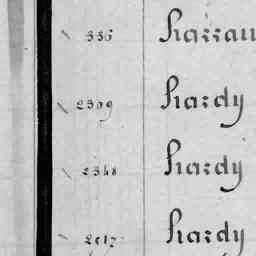 336 Harrau
2309 Hardy
2348 Hardy
Hardy